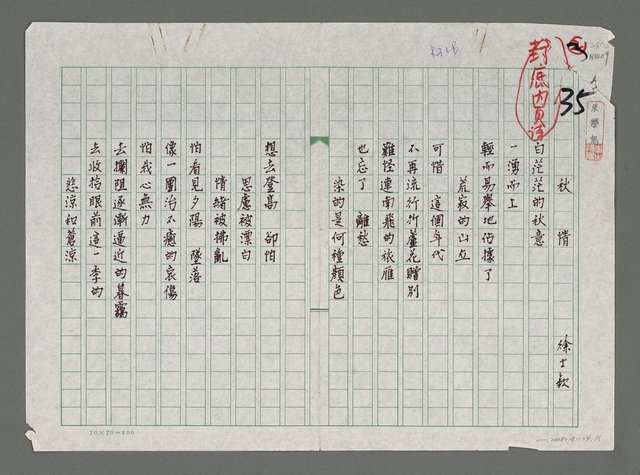 封底內頁詩
35
秋情
徐士欽
白茫茫的秋意
一湧而上
輕而易舉地佔據了
荒寂的山丘
可惜 這個年代
不再流行折蘆花贈別
難怪連南飛的旅雁
也忘了 離愁
染的是何種顏色
想去登高 卻怕
思慮被漂白
情緒被拂亂
怕看見夕陽 墜落
像一團治不癒的哀傷
怕我心無力
去攔阻逐漸逼近的暮靄
去收拾眼前這一季的
悲涼和蒼涼
20×20=400